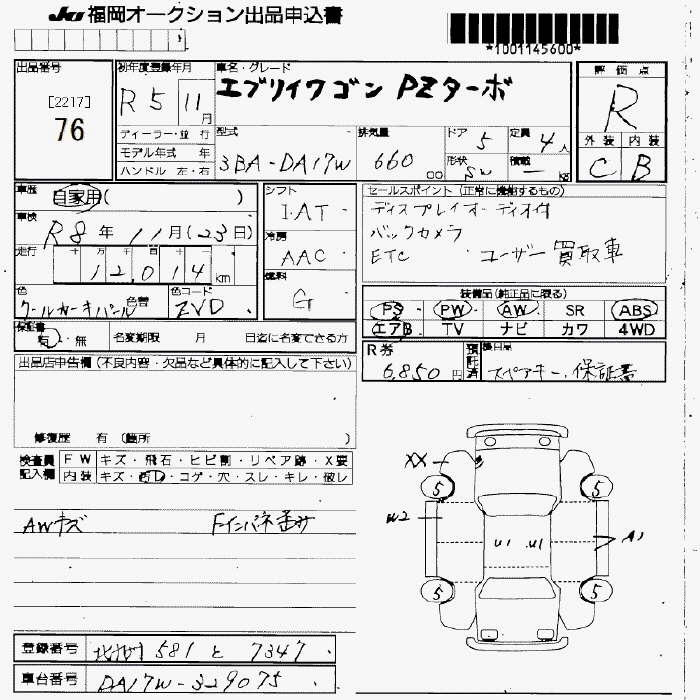 JU 福岡オークション出品申込書
*1001145600*
出品番号 初年度登録年月 車名・グレード 評価点
[2217] 76
R5 11月
エブリイワゴン PZターボ
R
ディーラー・並行
モデル年式 年
ハンドル 左・右
型式 排気量 ドア 定員 外装 内装
3BA-DA17W 660 cc 5 4人 C B
形状 SW 積載 - kg
車歴 自家用( )
シフト IAT
セールスポイント(正常に機能するもの)
ディスプレイオーディオ付
バックカメラ
ETC ・ユーザー買取車
車検 R8年 11月(23日)
冷房 AAC
走行 十万千百十一
12,014 km
燃料 G
色 クールカーキパール 色替 色コード ZVD
装備品(純正品に限る)
PS PW AW SR ABS
エアB TV ナビ カワ 4WD
保証書 有・無 名変期限 月 日迄に名変できる方
R券 6,850円 預託済 後日品 スペアキー、保証書
出品店申告欄(不良内容・欠品など具体的に記入して下さい)
修復歴 有(箇所 )
検査員記入欄 FW キズ・飛石・ヒビ割・リペア跡・X要
内装 キズ・汚れ・コゲ・穴・スレ・キレ・破レ
AWキズ Fインパネ歪み
XX
5 5
W2 U1 U1 A1
5 5
登録番号 581 と 7347
車台番号 DA17W-329075